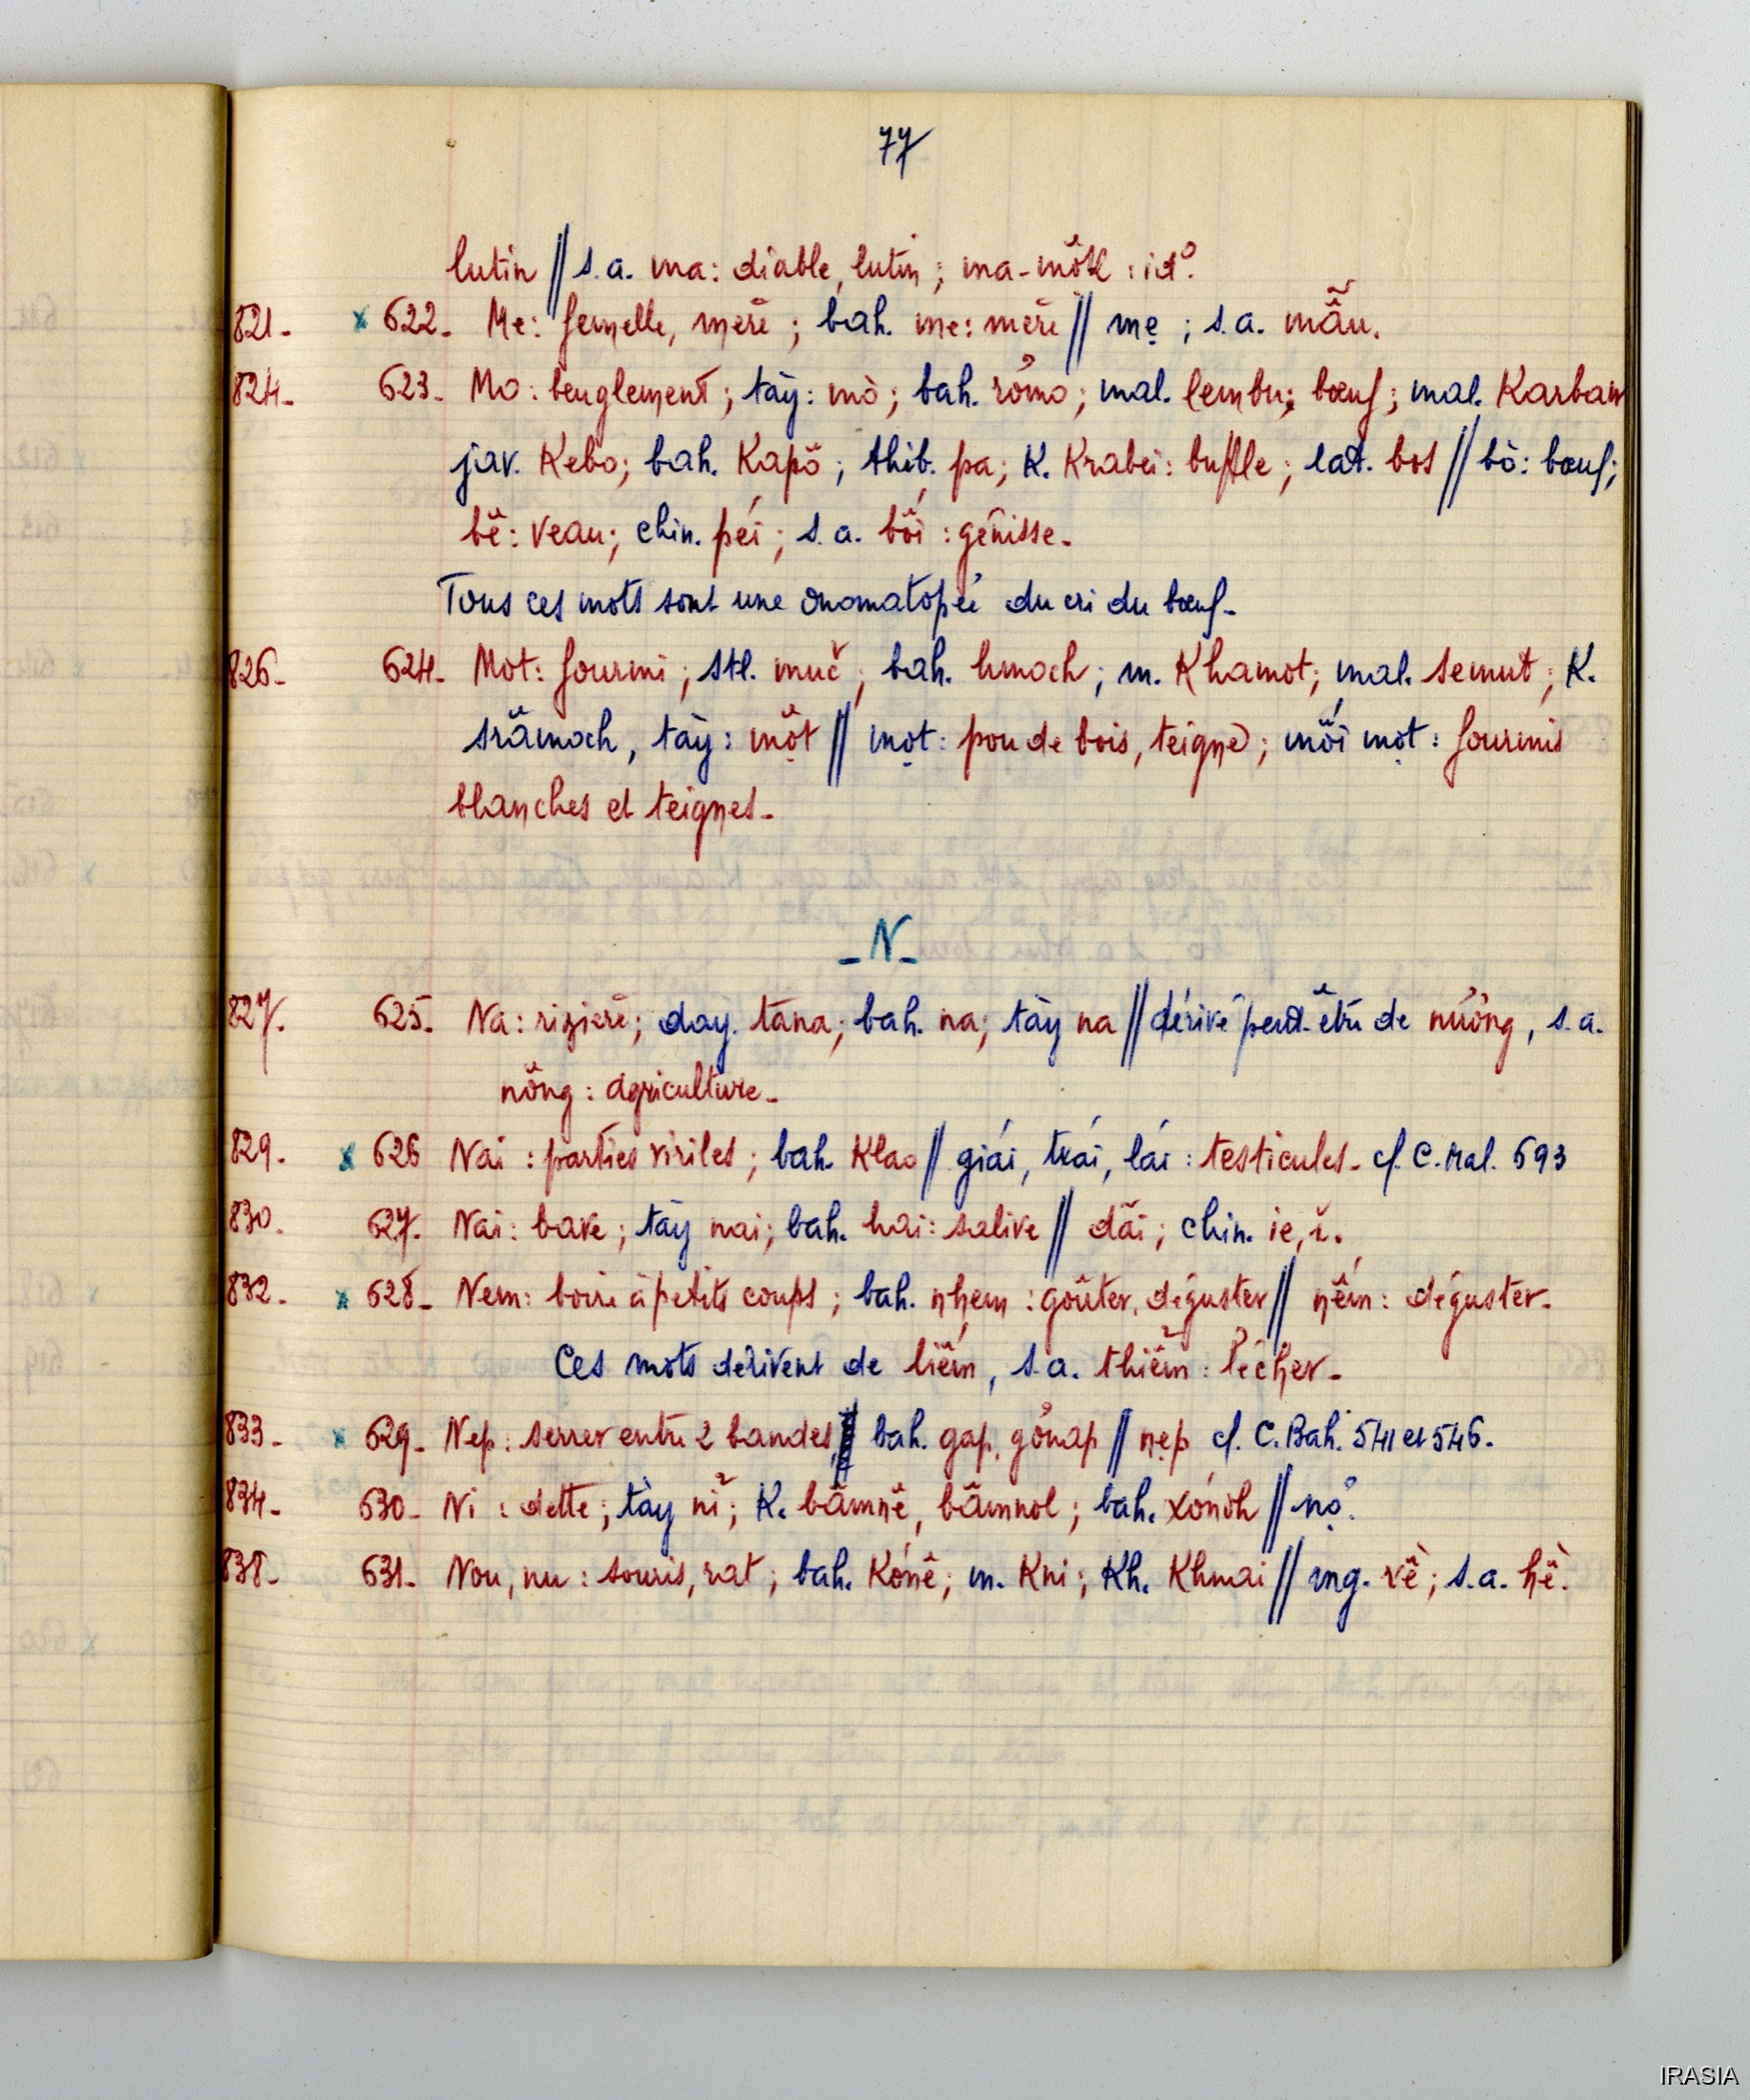 77
lutin // s.a. ma: diable, lutin; ma-môtl: id°.
821- x 622- Me: femelle, mère; bah. me: mère // mẹ; s.a. mẫu.
824- 623- Mo: beuglement; tày: mò; bah. rơmo; mal. lembu: bœuf; mal. Karbaw
jav. Kebo; bah. Kapô; thib. pa; K. Krabei: buffle; lat. bos // bò: bœuf;
bê: veau; chin. péi; s.a. bối: génisse-
Tous ces mots sont une onomatopée du cri du bœuf-
826- 624- Mot: fourmi; stl. muč; bah. hmoch; m. Khamot; mal. semut; K.
srâmoch, tày: một // mọt: pou de bois, teigne; mối mọt: fourmis
blanches et teignes-
- N -
827. 625- Na: rizière; day. tana; bah. na; tày na // dérivé peut-être de nương, s.a.
nông: agriculture-
829- x 626 Nai: parties viriles; bah. Klao // giái, trái, lái: testicules- cf. C. Mal. 593
830. 627- Nai: bave; tày nai; bah. hai: salive // dãi; chin. ie, i.
832- x 628- Nem: boire à petits coups; bah. nhem: goûter, déguster // nếm: déguster-
Ces mots dérivent de liếm, s.a. thiểm: lécher-
833- x 629- Nep: serrer entre 2 bandes, bah. gap, gơnap // nẹp cf. C. Bah. 541 et 546-
834- 630- Ni: dette; tày nỉ; K. bâmnê, bâmnol; bah. xơnoh // nợ.
838- 631- Nou, nu: souris, rat; bah. Konê; m. Kni; Kh. Khmai // mg. vê; s.a. hê.
IRASIA